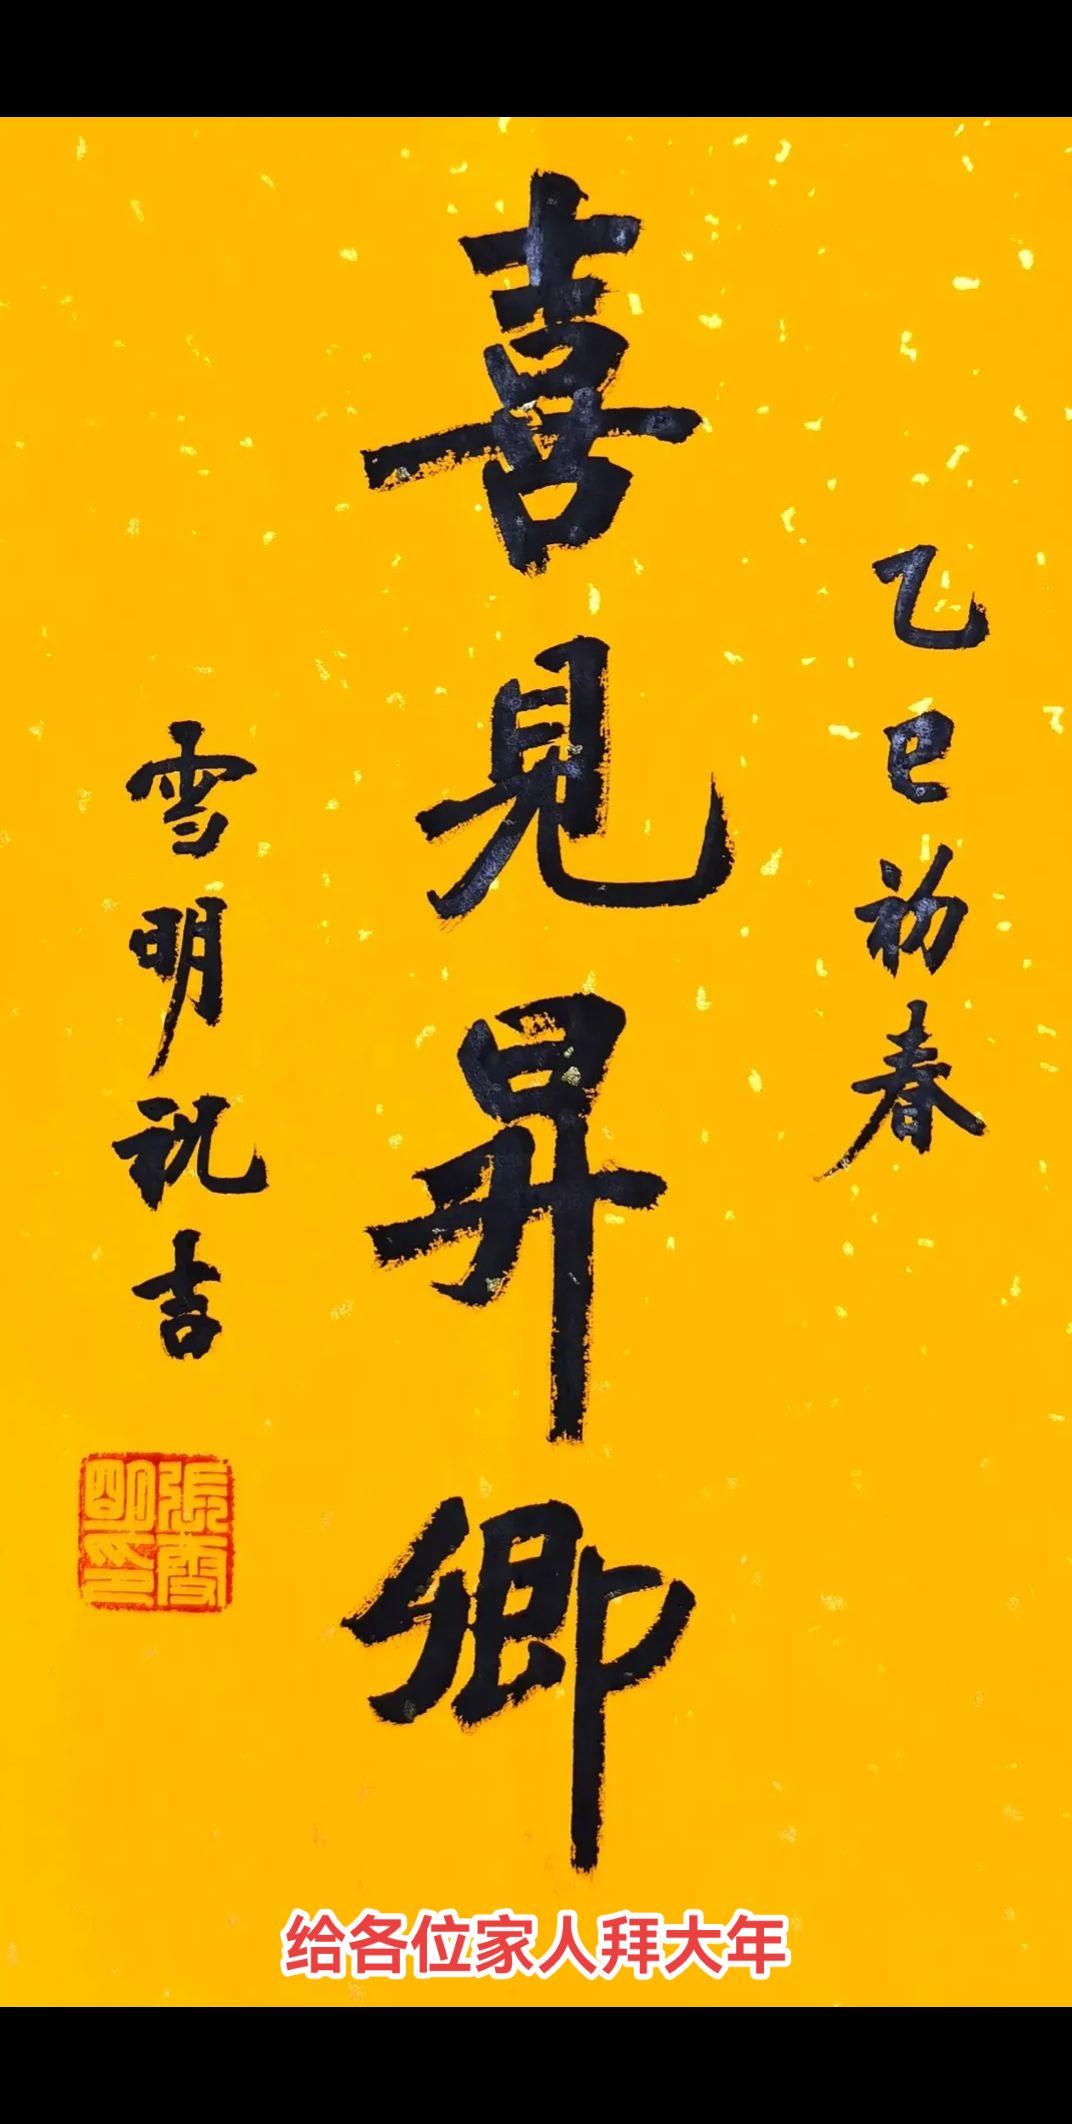 乙巳初春
喜見昇卿
雪明祝吉
張雪明印
给各位家人拜大年